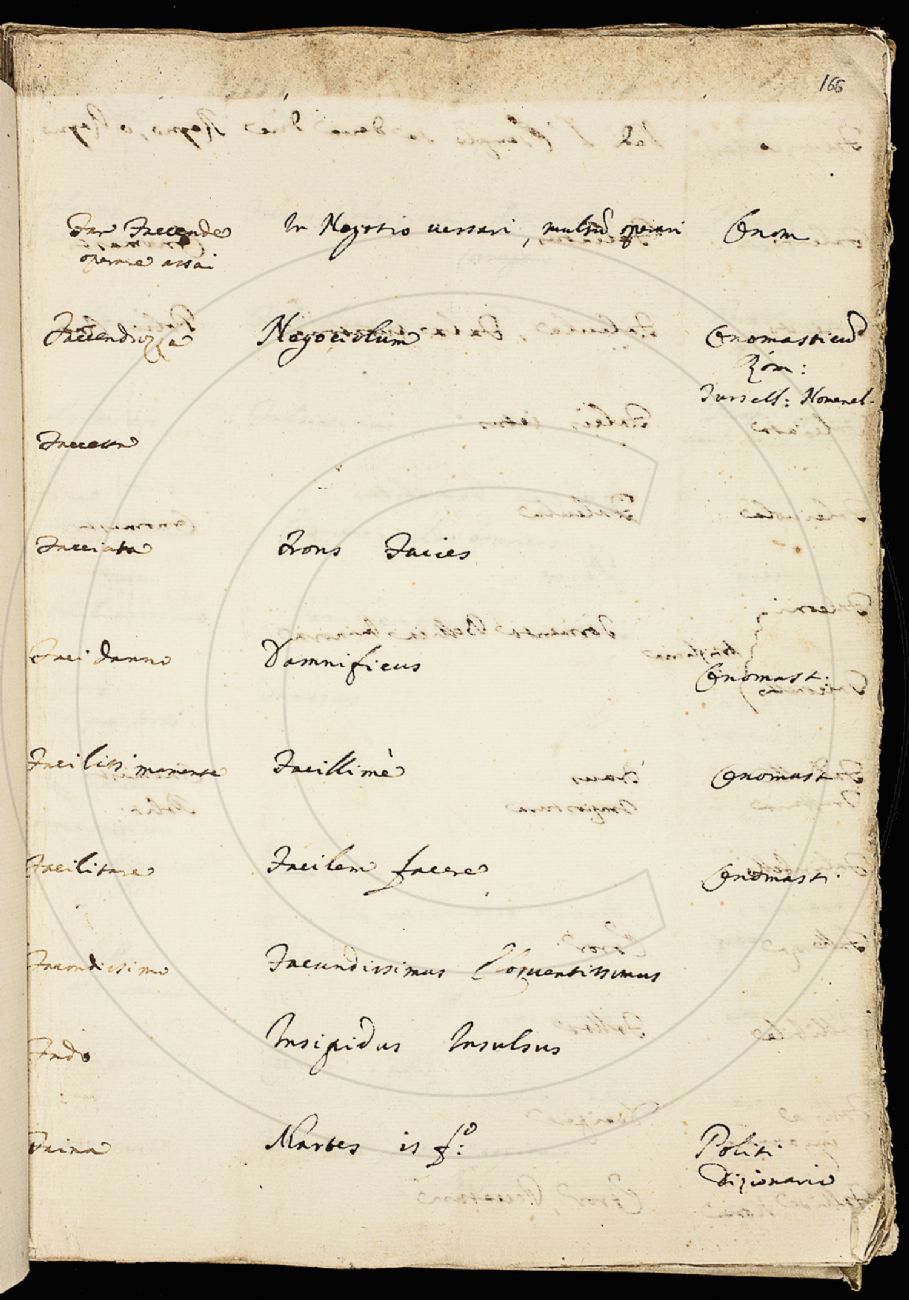 166
Far Facende In Negotio versari, multũ operari Onom
operare assai
Faccendozza Negociolum Onomasticũ
Rom:
Turssell: Nomencl.
Faccetta
Facciata Frons Facies
Faci danno Damnificus Onomast:
Facilissimamente Facillimè Onomast
Facilitare Facilem facere Onomast.
Facondissimo Facundissimus Eloquentissimus
Fado Insipidus Insulsus
Faina Martes is fº: Politi
Dizionario